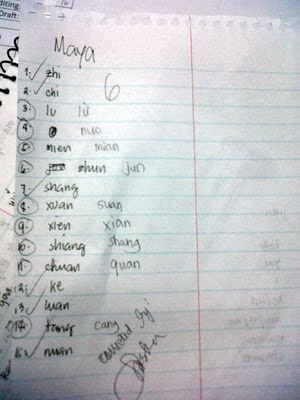 diting:
Draft:
Maya
6
1. zhi
2. chi
3. lu lü
4. nuo
5. nen mian
6. zhun jun
7. shang
8. xuan suan
9. xien xian
10. shiang shang
11. chuan quan
12. ke
13. wan
14. tang cang
15. nuan
corrected by: